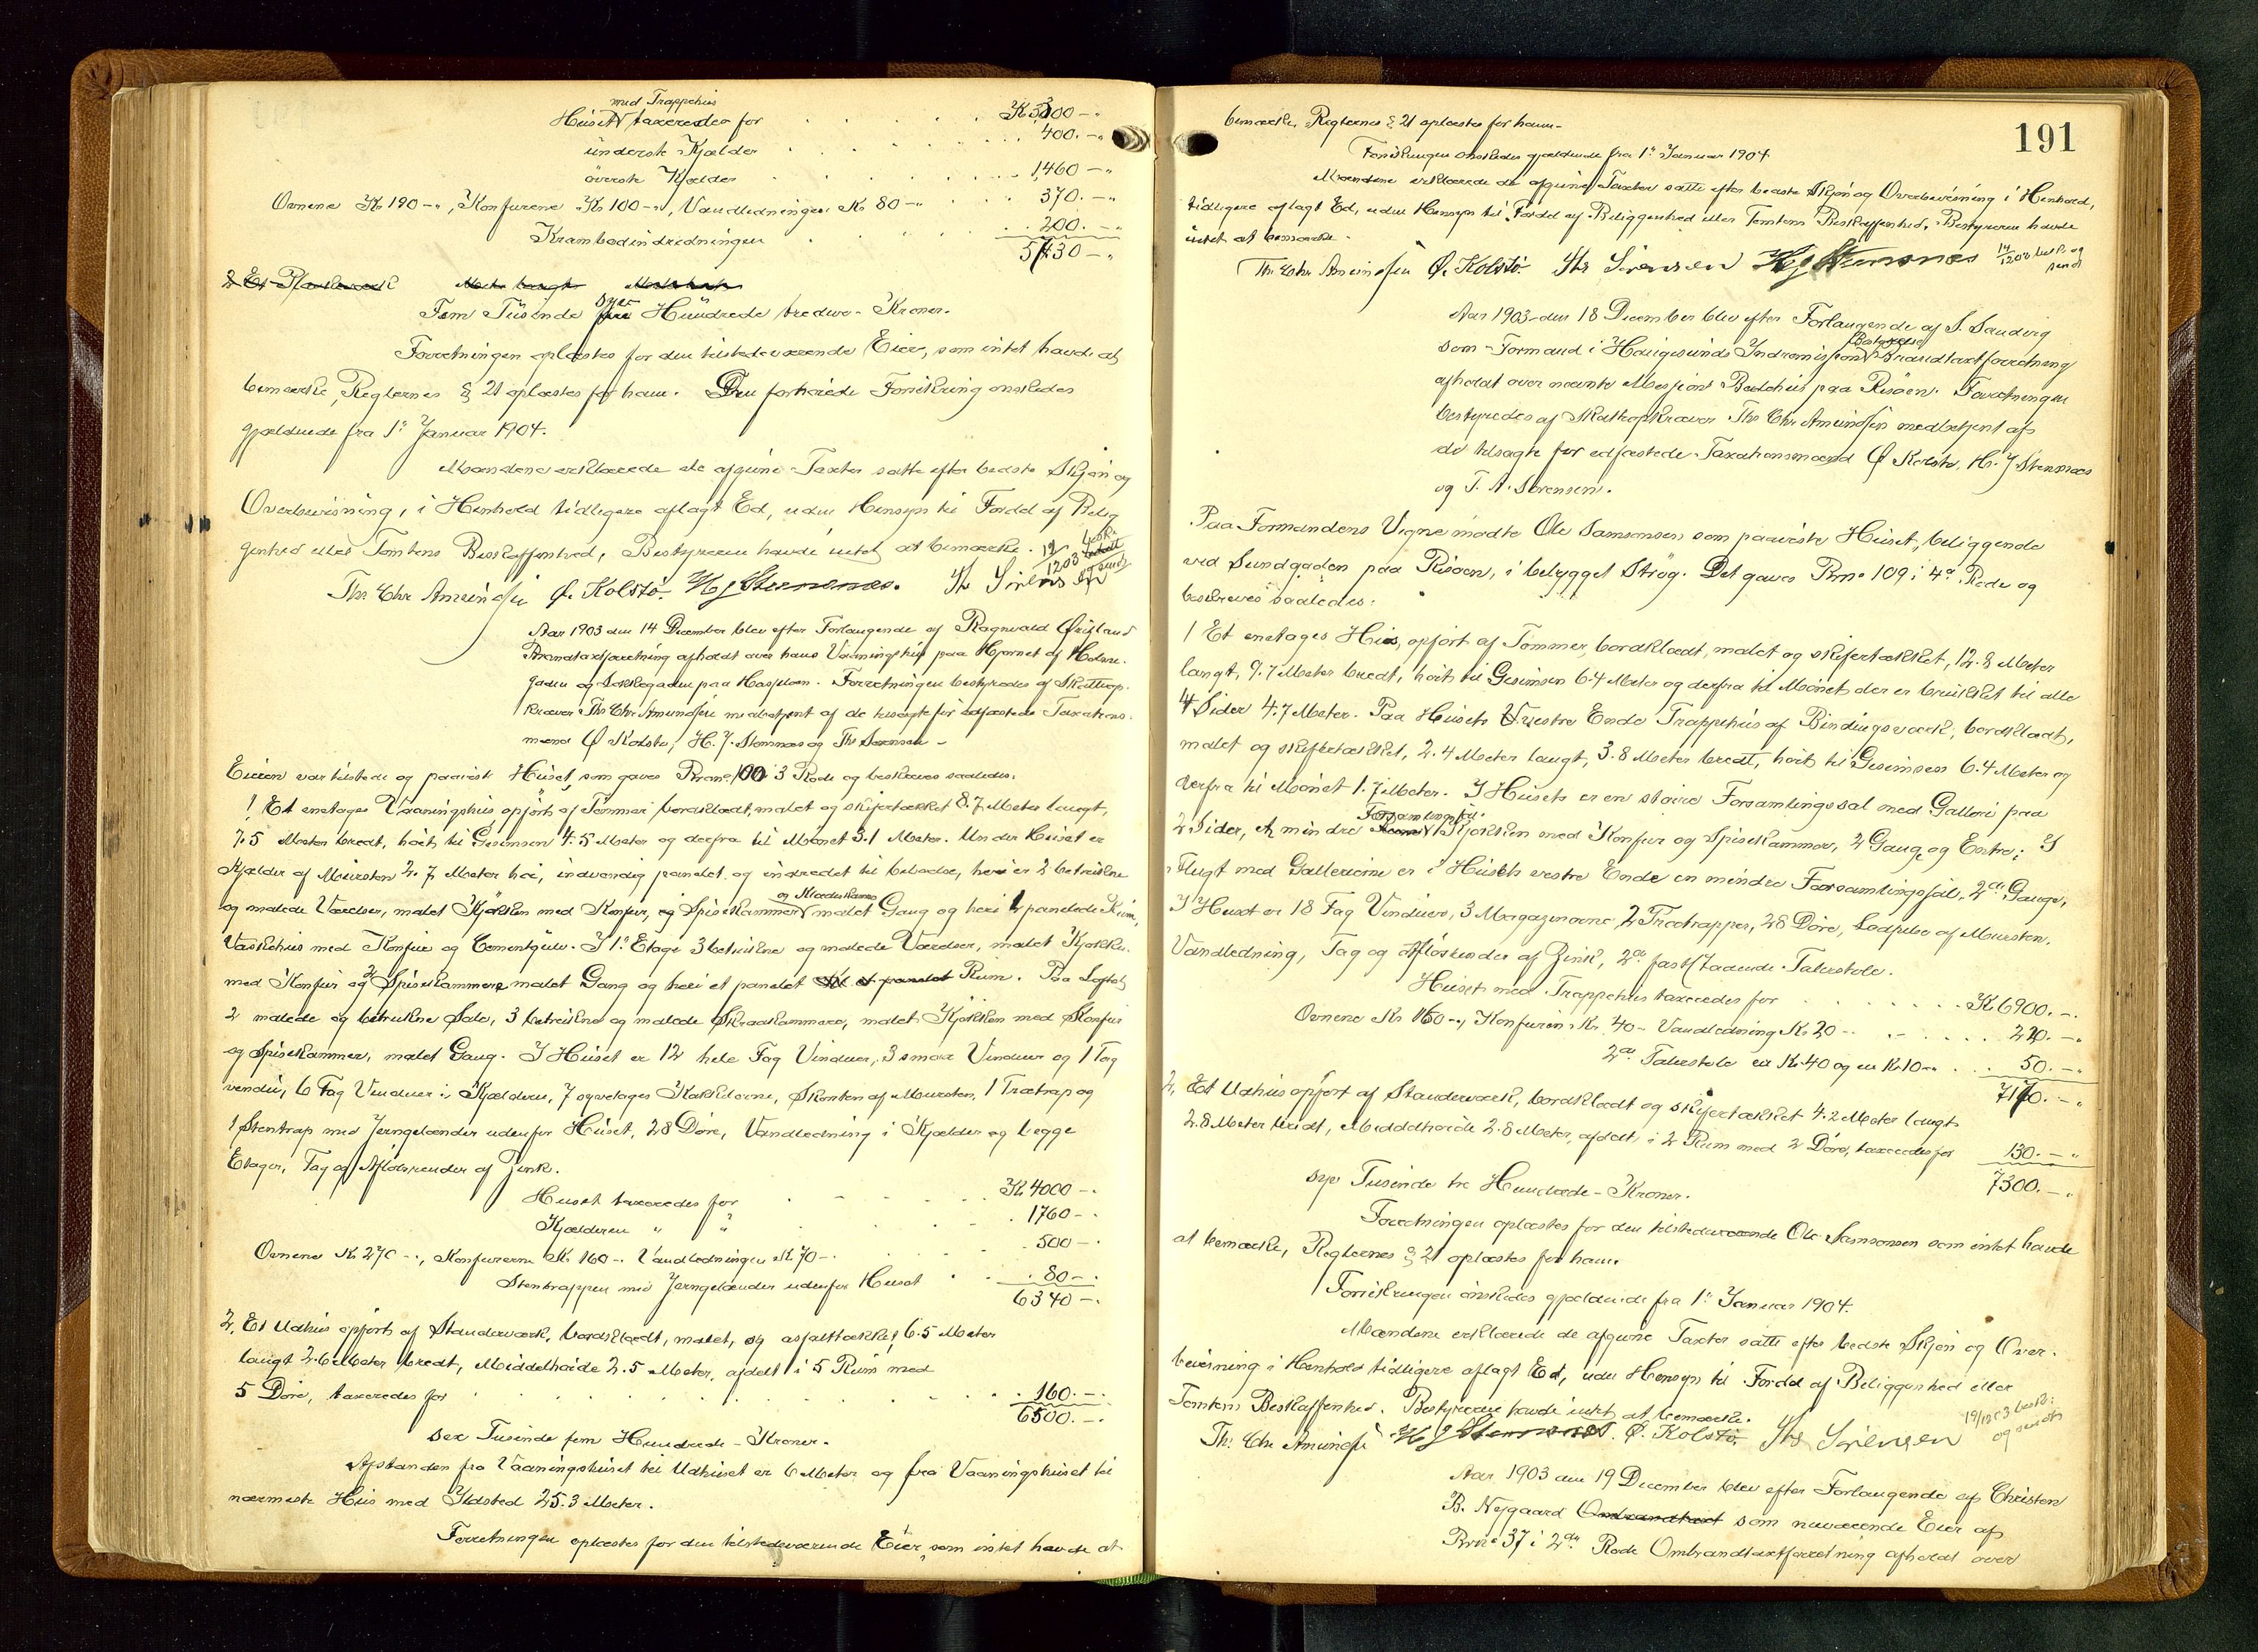 med Trappehus
Huset taxeredes for K 3300 -"
underste Kjælder 400.-"
øverste Kjælder 1460 -"
Ovnene Kr 190 -", Konfurene Kr 100 -", Vandledningen Kr 80 -" 370.-"
Krambodindredningen 200.-"
5730 -"
Fem Tusinde syv Hundrede tredve - Kroner.
Forretningen oplæstes for den tilstedeværende Eier, som intet havde at
bemærke, Reglernes § 21 oplæstes for ham. Den forhøiede Forsikring ønskedes
gjældende fra 1ste Januar 1904.
Mændene erklærede de afgivne Taxter satte efter bedste Skjøn og
Overbevisning, i Henhold tidligere aflagt Ed, uden Hensyn til Fordel af Belig
genhed eller Tomtens Beskaffenhed, Bestyreren havde intet at bemærke.
Ths Chr Amundsen Ø. Kolstø. H J Stensnæs. Ths Sörensen
Aar 1903 den 14 December blev efter Forlangende af Ragnvald Østland
Brandtaxtforretning afholdt over hans Vaaningshus paa Hjørnet af
gaden og Sokkegaden paa Hasseløen. Forretningen bestyredes af Skatteop-
kræver Ths Chr Amundsen medbetjent af de tilsagte før edfæstede Taxations-
mænd Ø Kolstø, H. J. Stensnæs og Ths Sørensen -
Eieren var tilstede og paaviste Huset, som gaves Brno 100 i 3 Rode og beskreves saaledes:
1 Et enetages Vaaningshus opført af Tømmer bordklædt, malet og skifertækket 8.7 Meter langt,
7.5 Meter bredt, høit til Gesimsen 4.5 Meter og derfra til Mønet 3.1 Meter. Under Huset er
Kjælder af Mursten 2.7 Meter høi, indvendig panelet og indredet til beboelse, heri er 2 betrukne
og Klædeskammer
og malede Værelser, malet Kjøkken med Konfur, og Spisekammer malet Gang og heri 1 panelede Rum,
Vaskehus med Konfur og Cementgulv. I 1ste Etage 3 betrukne og malede Værelser, malet Kjøkken
med Konfur og 2 Spisekammere malet Gang og heri et panelet Rum. Paa Loftet
2 malede og betrukne Sale, 3 betrukne og malede Skraakammere, malet Kjøkken med Konfur
og Spisekammer, malet Gang. I Huset er 12 hele Fag Vinduer, 3 smaa Vinduer og 1 Tag
vindu, 6 Fag Vinduer i Kjælderen, 7 Kakkelovne, Skorsten af Mursten, 1 Trætrap og
1 Stentrap med Jerngelænder udenfor Huset, 28 Døre, Vandledning i Kjælder og begge
Etager, Tag og Afløbsrender af Zink.
Huset taxeredes for K 4000 -"
Kjælderen " " 1760 -"
Ovnene Kr 270 -", Konfurerne Kr 160 -" Vandledningen Kr 70 -" 500 -"
Stentrappen med Jerngelænder udenfor Huset 80 -"
6340 -"
2, Et Udhus opført af Standerværk, bordklædt, malet, og asfalttækket, 6.5 Meter
langt 2.6 Meter bredt, Middelhøide 2.5 Meter, afdelt i 5 Rum med
5 Døre, taxeredes for 160.-"
6500.-"
Sex Tusinde fem Hundrede - Kroner.
Afstanden fra Vaaningshuset til Udhuset er 6 Meter og fra Vaaningshuset til
nærmeste Hus med Ildsted 25.3 Meter.
Forretningen oplæstes for den tilstedeværende Eier, som intet havde at
191
bemærke, Reglernes § 21 oplæstes for ham -
Forsikringen ønskedes gjældende fra 1ste Januar 1904
Mændene erklærede de afgivne Taxter satte efter bedste Skjøn og Overbevisning i Henhold,
tidligere aflagt Ed, uden Hensyn til Fordel af Beliggenhed eller Tomtens Beskaffenhed, Bestyreren havde
intet at bemærke.
Ths Chr Amundsen Ø. Kolstø. Ths Sörensen H J Stensnæs
Aar 1903 den 18 December blev efter Forlangende af S. Sandvig
Bestyrelse
som Formand i Haugesunds Indremissions Brandtaxtforretning
afholdt over nævnte Missions Bedehus paa Risøen. Forretningen
bestyredes af Skatteopkræver Ths Chr Amundsen medbetjent af
de tilsagte før edfæstede Taxationsmænd Ø Kolstø, H. J Stensnæs
og T. A. Sørensen.
Paa Formandens Vegne mødte Ole Samsonsen som paaviste Huset, beliggende
ved Sundgaden paa Risøen, i bebygget Strøg. Det gaves Brno 109 i 4de Rode og
beskreves saaledes:
1 Et enetages Hus, opført af Tømmer, bordklædt, malet og skifertækket, 12.8 Meter
langt, 9.7 Meter bredt, høit til Gesimsen 6.4 Meter og derfra til Mønet der er brukket til alle
4 Sider 4.7 Meter. Paa Husets Vestre Ende Trappehus af Bindingsværk, bordklædt,
malet og skifertækket, 2.4 Meter langt, 3.8 Meter bredt, høit til Gesimsen 6.4 Meter og
derfra til Mønet 1.7 Meter. I Husets er en større Forsamlingssal med Galleri paa
Forsamlingssal
2 Sider, et mindre Kjøkken med Konfur og Spisekammer, 2 Gange og Entre; I
Flugt med Gallerierne er i Husets vestre Ende en mindre Forsamlingssal, 2de Gange,
I Huset er 18 Fag Vinduer, 3 Magazinovne, 2 Trætrapper, 28 Døre, Lodpibe af Mursten,
Vandledning, Tag og Afløbsrender af Zink, 2de fastståaende Talerstole.
Huset med Trappehus taxeredes for K 6900.-"
Ovnene Kr 160 -", Konfuren Kr. 40 - Vandledning Kr 20 -" 220.-"
2de Talerstole en Kr 40 og en Kr 10 -" 50.-"
7170.-"
2, Et Udhus opført af Standerværk, bordklædt og skifertækket 4.2 Meter langt
2.8 Meter bredt, Middelhøide 2.8 Meter, afdelt i 2 Rum med 2 Døre, taxeredes for 130.-"
7300.-"
Syv Tusinde tre Hundrede - Kroner.
Forretningen oplæstes for den tilstedeværende Ole Samsonsen som intet havde
at bemærke, Reglernes § 21 oplæstes for ham.
Forsikringen ønskedes gjældende fra 1ste Januar 1904.
Mændene erklærede de afgivne Taxter satte efter bedste Skjøn og Over-
bevisning i Henhold tidligere aflagt Ed, uden Hensyn til Fordel af Beliggenhed eller
Tomtens Beskaffenhed. Bestyreren havde intet at bemærke.
Ths. Chr Amundsen H J Stensnæs. Ø. Kolstø. Ths Sörensen
Aar 1903 den 19 December blev efter Forlangende af Christen
B. Nygaard som nuværende Eier af
Brno 37 i 2den Rode Ombrandtaxtforretning afholdt over